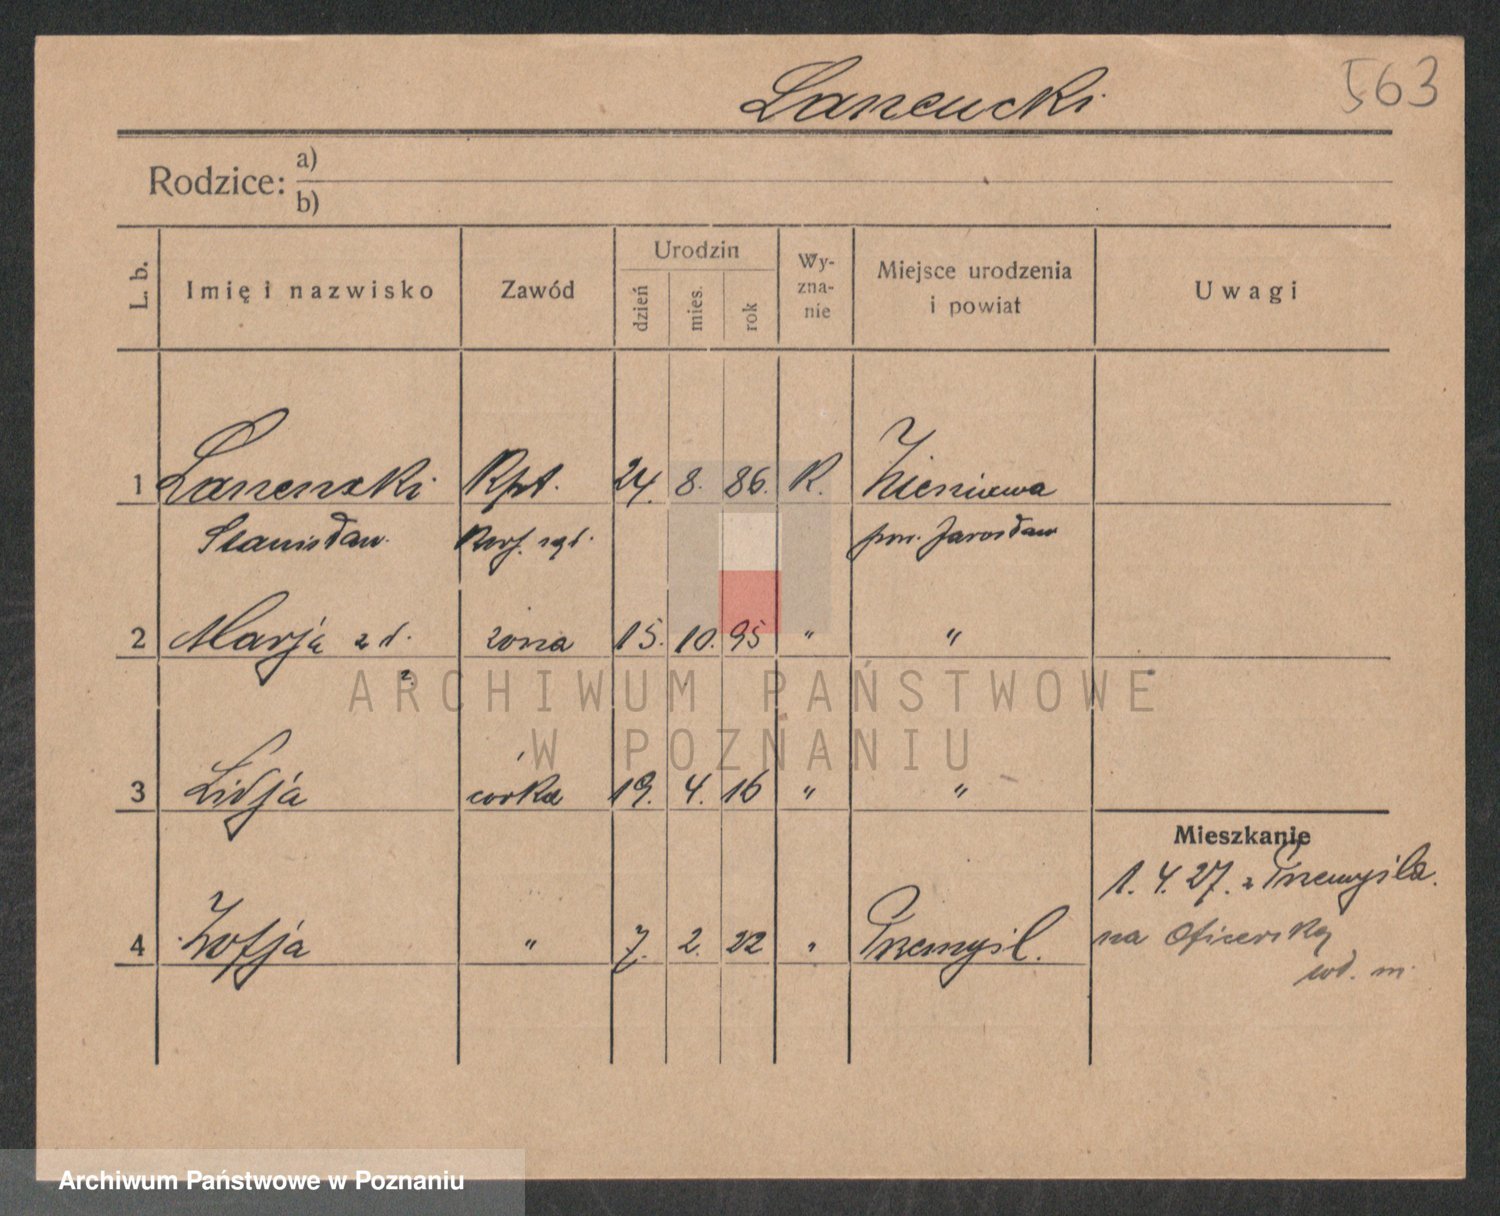 563
Lancucki
Rodzice: a)
b)
L. b. Imię i nazwisko Zawód Urodzin dzień mies. rok Wy-zna-nie Miejsce urodzenia i powiat Uwagi
1 Lancucki Kpt. 24. 8. 86. R.
Stanisław. pow. Jarosław
2 Marja z d. żona 15. 10. 95 " "
?
3 Lidja córka 19. 4. 16 " "
Mieszkanie
1. 4. 27. z Przemyśla.
4 Zofja " 7. 2. 22 " Przemyśl.
na Oficerską
wd. m.
ARCHIWUM PAŃSTWOWE
W POZNANIU
Archiwum Państwowe w Poznaniu